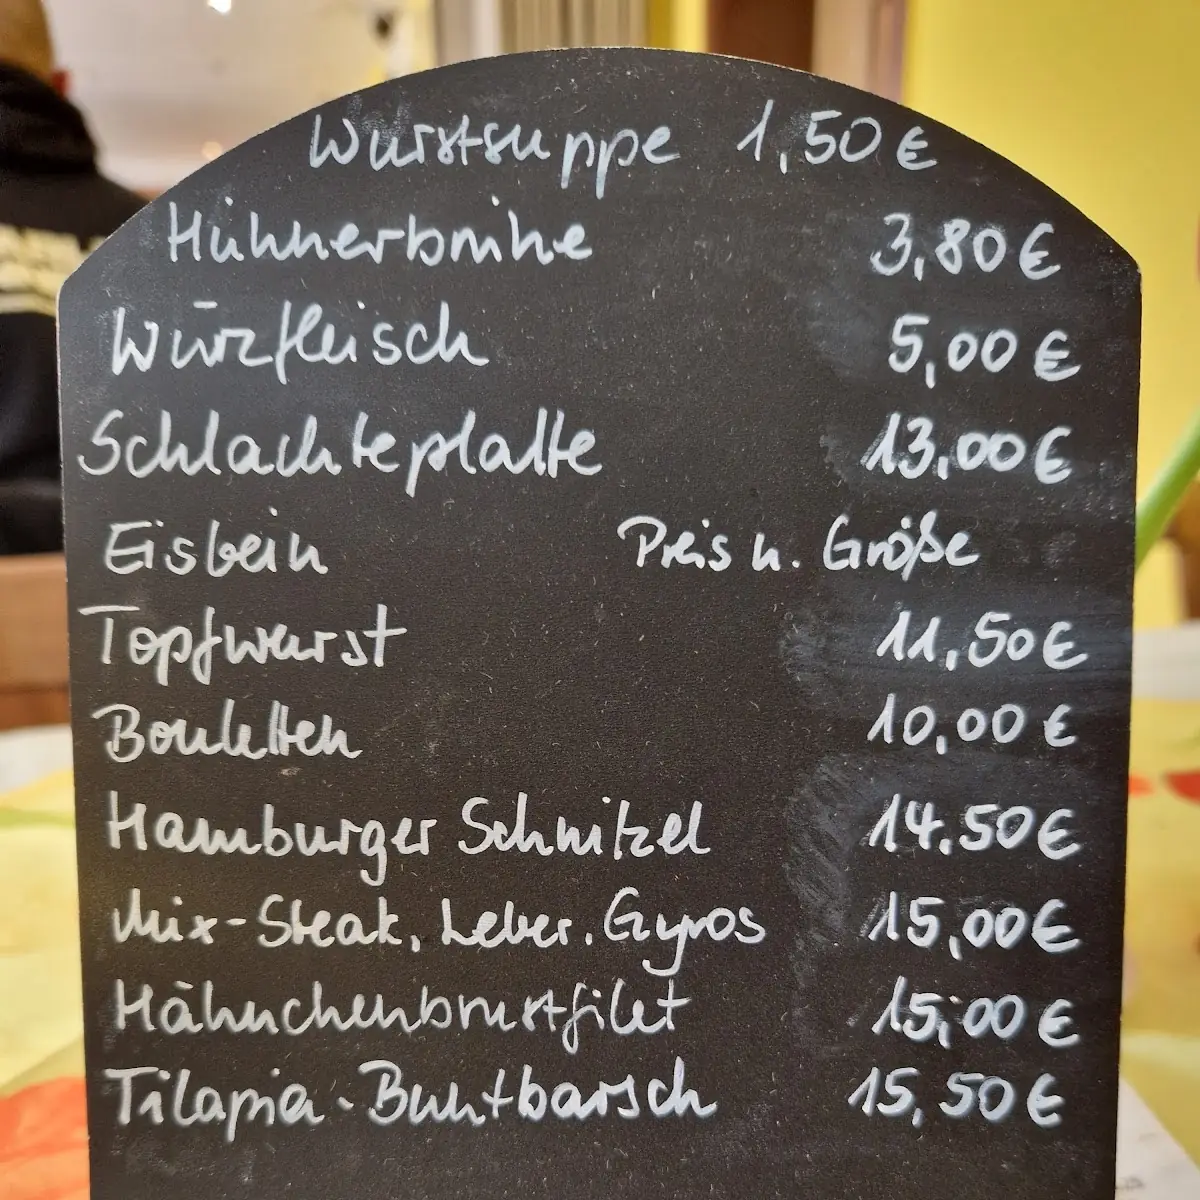 Wurstsuppe 1,50 €
Hühnerbrühe 3,80 €
Würzfleisch 5,00 €
Schlachteplatte 13,00 €
Eisbein Preis n. Größe
Topfwurst 11,50 €
Bouletten 10,00 €
Hamburger Schnitzel 14.50 €
Mix-Steak, Leber, Gyros 15,00 €
Hähnchenbrustfilet 15,00 €
Tilapia-Buntbarsch 15,50 €